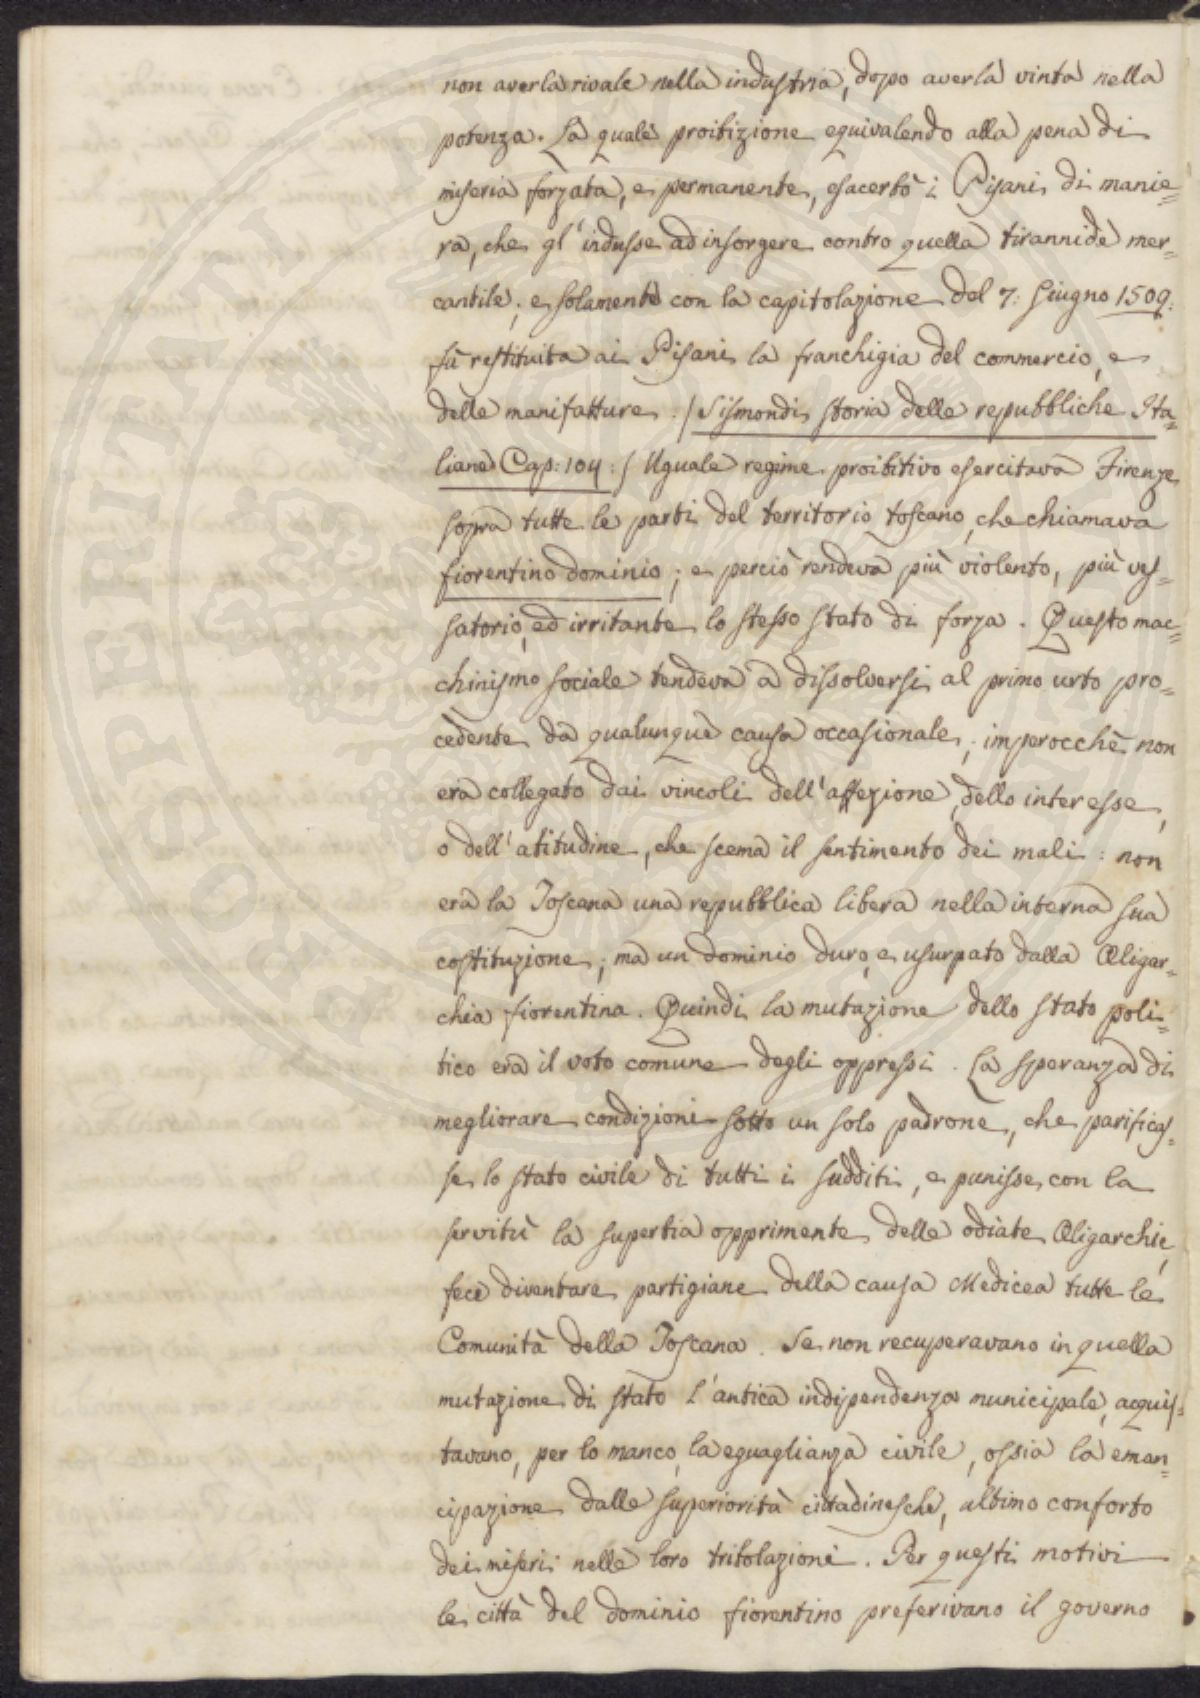 non averla rivale nella industria, dopo averla vinta nella
potenza. La quale proibizione equivalendo alla pena di
miseria forzata, e permanente, esacerbò i Pisani di manie=
ra, che gl'indusse ad insorgere contro quella tirannide mer=
cantile; e solamente con la capitolazione del 7: Giugno 1509:
fù restituita ai Pisani la franchigia del commercio, e
delle manifatture :/ Sismondi storia delle repubbliche Ita=
liane Cap: 104 :/ Uguale regime proibitivo esercitava Firenze
sopra tutte le parti del territorio toscano, che chiamava
fiorentino dominio; e perciò rendeva più violento, più ves=
satorio, ed irritante lo stesso stato di forza. Questo mac=
chinismo sociale tendeva a dissolversi al primo urto pro=
cedente da qualunque causa occasionale; imperocchè non
era collegato dai vincoli dell'affezione, dello interesse,
o dell'atitudine, che scema il sentimento dei mali: non
era la Toscana una repubblica libera nella interna sua
costituzione; ma un dominio duro, e usurpato dalla Oligar=
chia fiorentina. Quindi la mutazione dello stato poli=
tico era il voto comune degli oppressi. La speranza di
megliorare condizioni sotto un solo padrone, che parificas=
se lo stato civile di tutti i sudditi, e punisse con la
servitù la superbia opprimente delle odiate Oligarchie,
fece diventare partigiane della causa Medicea tutte le
Comunità della Toscana. Se non recuperavano in quella
mutazione di stato l'antica indipendenza municipale, acquis=
tavano, per lo manco, la eguaglianza civile, ossia la eman=
cipazione dalle superiorità cittadinesche, ultimo conforto
dei miseri nelle loro tribolazioni. Per questi motivi
le città del dominio fiorentino preferivano il governo
PROSPERITATI